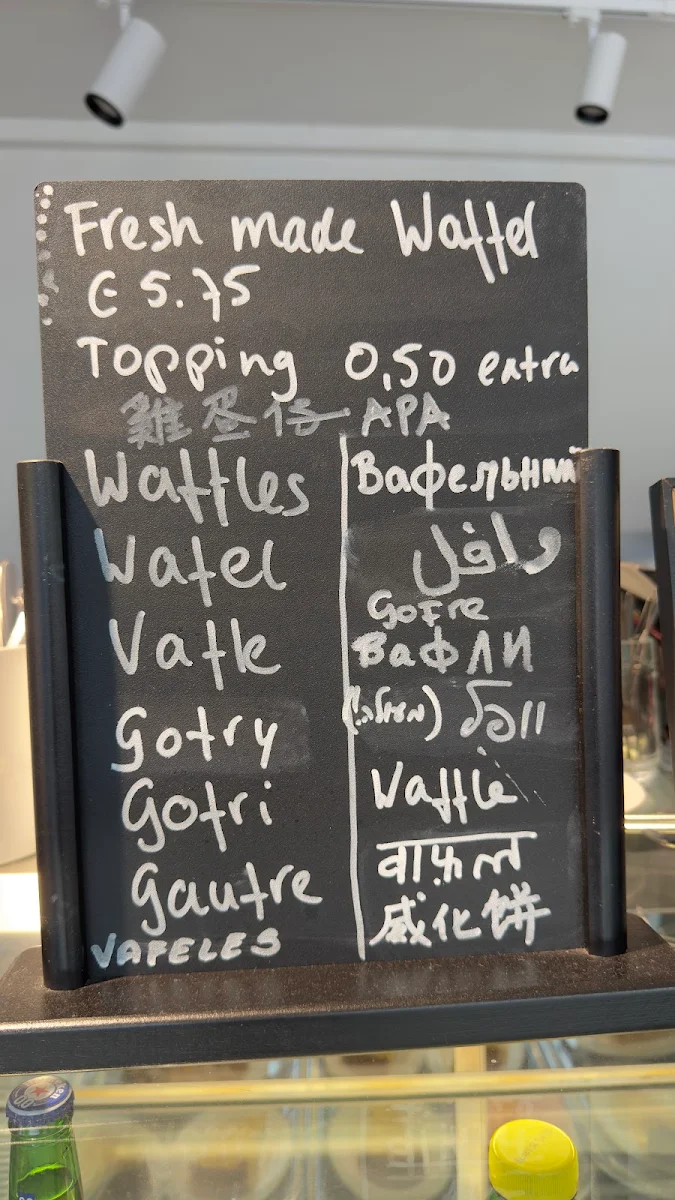 Fresh made Waffel
€ 5.75
Topping 0,50 extra
雞蛋仔 APA
Waffles
Wafel
Vafle
Gofry
Gofri
Gaufre
VAFELES
Вафельный
وافل
Gofre
ВАФЛИ
וופל
Waffle
वाफ़ल
威化饼